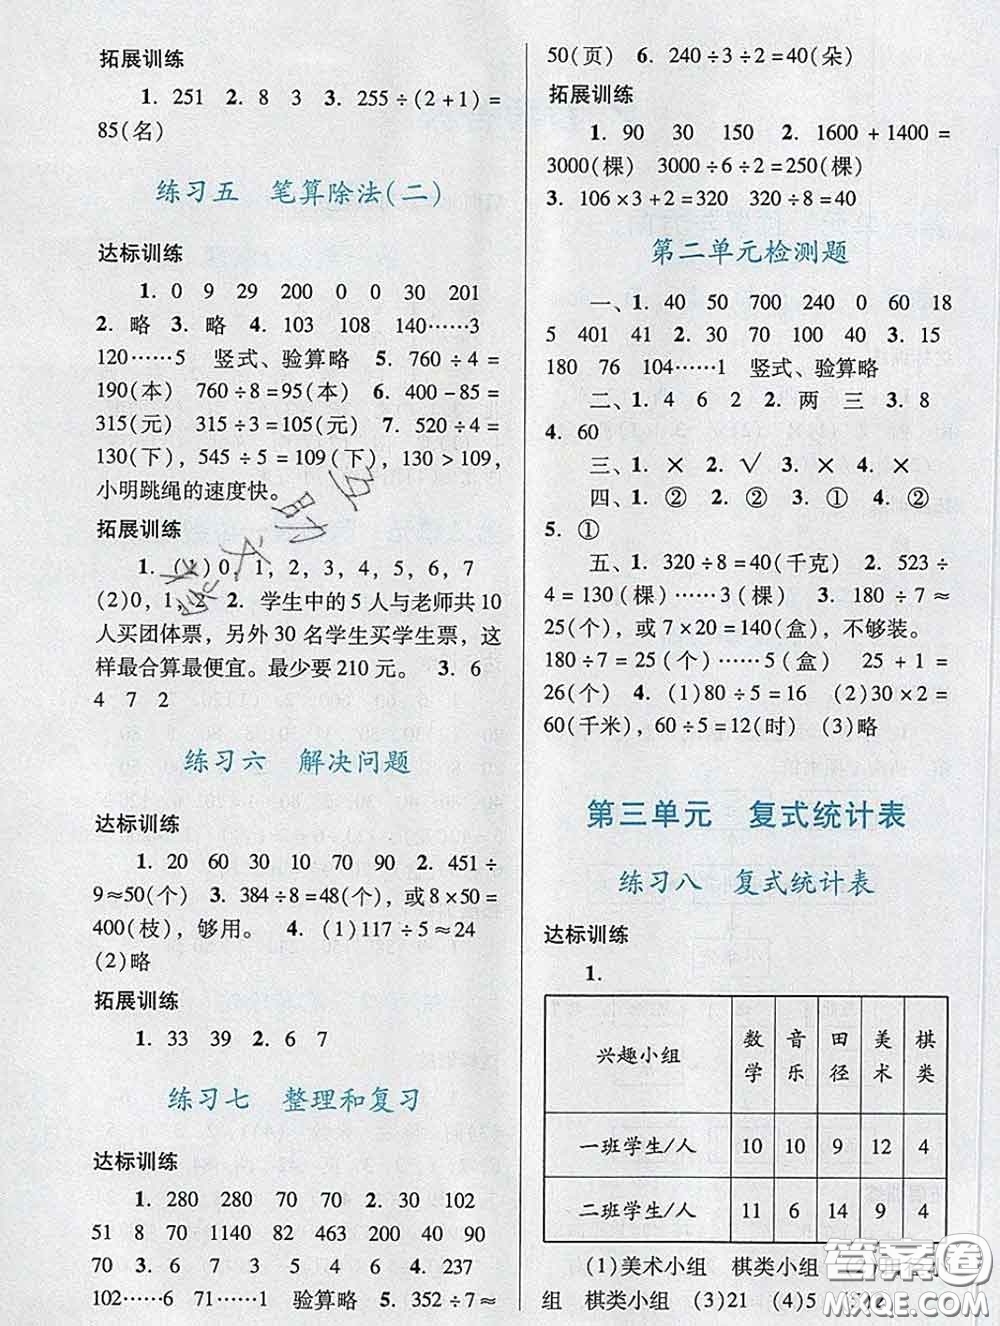 拓展训练
1. 251 2. 8 3 3. 255÷(2+1)=
85(名)
练习五 笔算除法(二)
达标训练
1. 0 9 29 200 0 0 30 201
2. 略 3. 略 4. 103 108 140……3
120……5 竖式、验算略 5. 760÷4=
190(本) 760÷8=95(本) 6. 400-85=
315(元) 315÷3=105(元) 7. 520÷4=
130(下), 545÷5=109(下), 130>109,
小明跳绳的速度快。
拓展训练
0, 1, 2, 3, 4, 5, 6, 7
(2)0, 1, 2. 学生中的5人与老师共10
人买团体票，另外30名学生买学生票，这
样最合算最便宜。最少要210元。 3. 6
4 7 2
练习六 解决问题
达标训练
1. 20 60 30 10 70 90 2. 451÷
9≈50(个) 3. 384÷8=48(个) 8×50=
400(枝), 够用。 4. (1)117÷5≈24
(2)略
拓展训练
1. 33 39 2. 6 7
练习七 整理和复习
达标训练
1. 280 280 70 70 2. 30 102
51 8 70 1140 82 463 200 40
70 3. 6 7 3 5 4 6 4. 237
102……6 71……1 验算略 5. 352÷7≈
50(页) 6. 240÷3÷2=40(朵)
拓展训练
1. 90 30 150 2. 1600+1400=
3000(棵) 3000÷6÷2=250(棵)
3. 106×3+2=320 320÷8=40
第二单元检测题
一、1. 40 50 700 240 0 60 18
5 401 41 2. 30 70 100 40 3. 15
180 76 104……1 竖式、验算略
二、1. 4 6 2 2. 两 三 3. 8
4. 60
三、1. × 2. √ 3. × 4. ×
四、1. ② 2. ② 3. ① 4. ②
5. ①
五、1. 320÷8=40(千克) 2. 523÷
4=130(棵)……3(棵) 3. 180÷7≈
25(个), 或7×20=140(盒), 不够装。
180÷7=25(个)……5(盒) 25+1
=26(个) 4. (1)80÷5=16 (2)30×2=
60(千米), 60÷5=12(时) (3)略
第三单元 复式统计表
练习八 复式统计表
达标训练
1.
兴趣小组 数学 音乐 田径 美术 棋类
一班学生/人 10 10 9 12 4
二班学生/人 11 6 14 9 4
(1)美术小组 棋类小组
组 棋类小组 (3)21 (4)5
答案圈
MXQE.COM